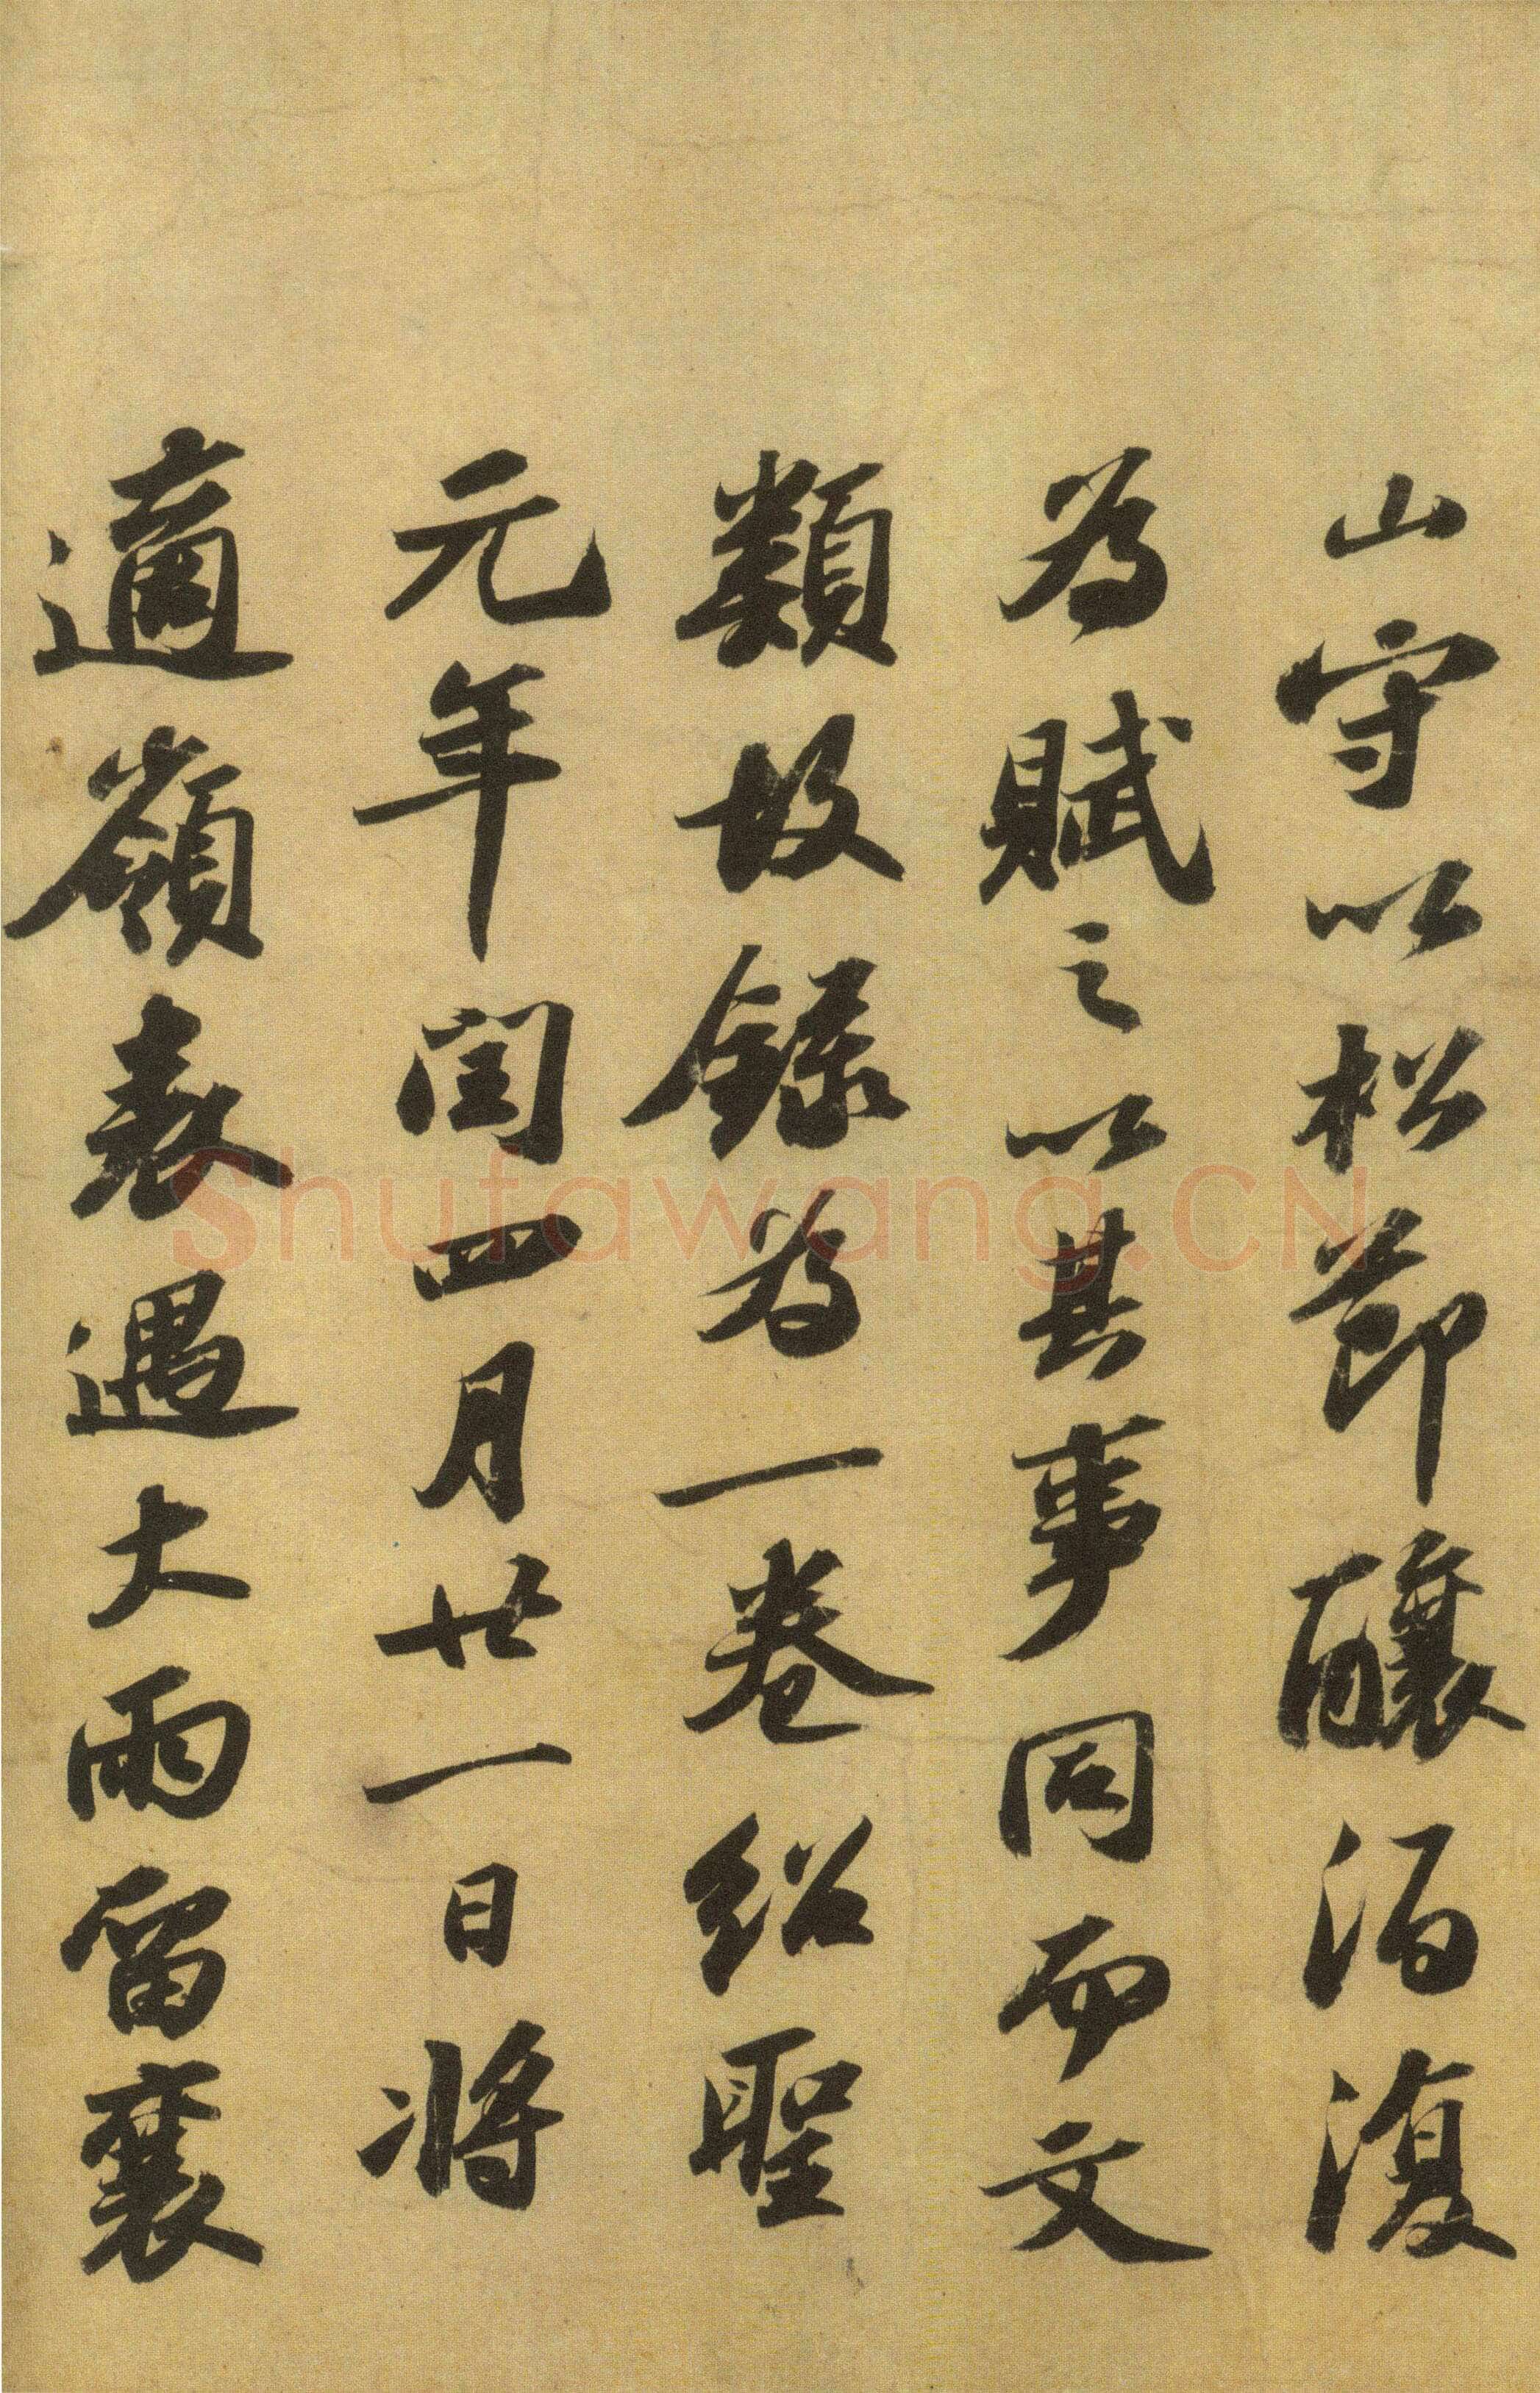 山守以松節釀酒復
為賦之以其事同而文
類故錄為一卷紹聖
元年閏四月廿一日將
適嶺表遇大雨留襄
Shufawang.CN